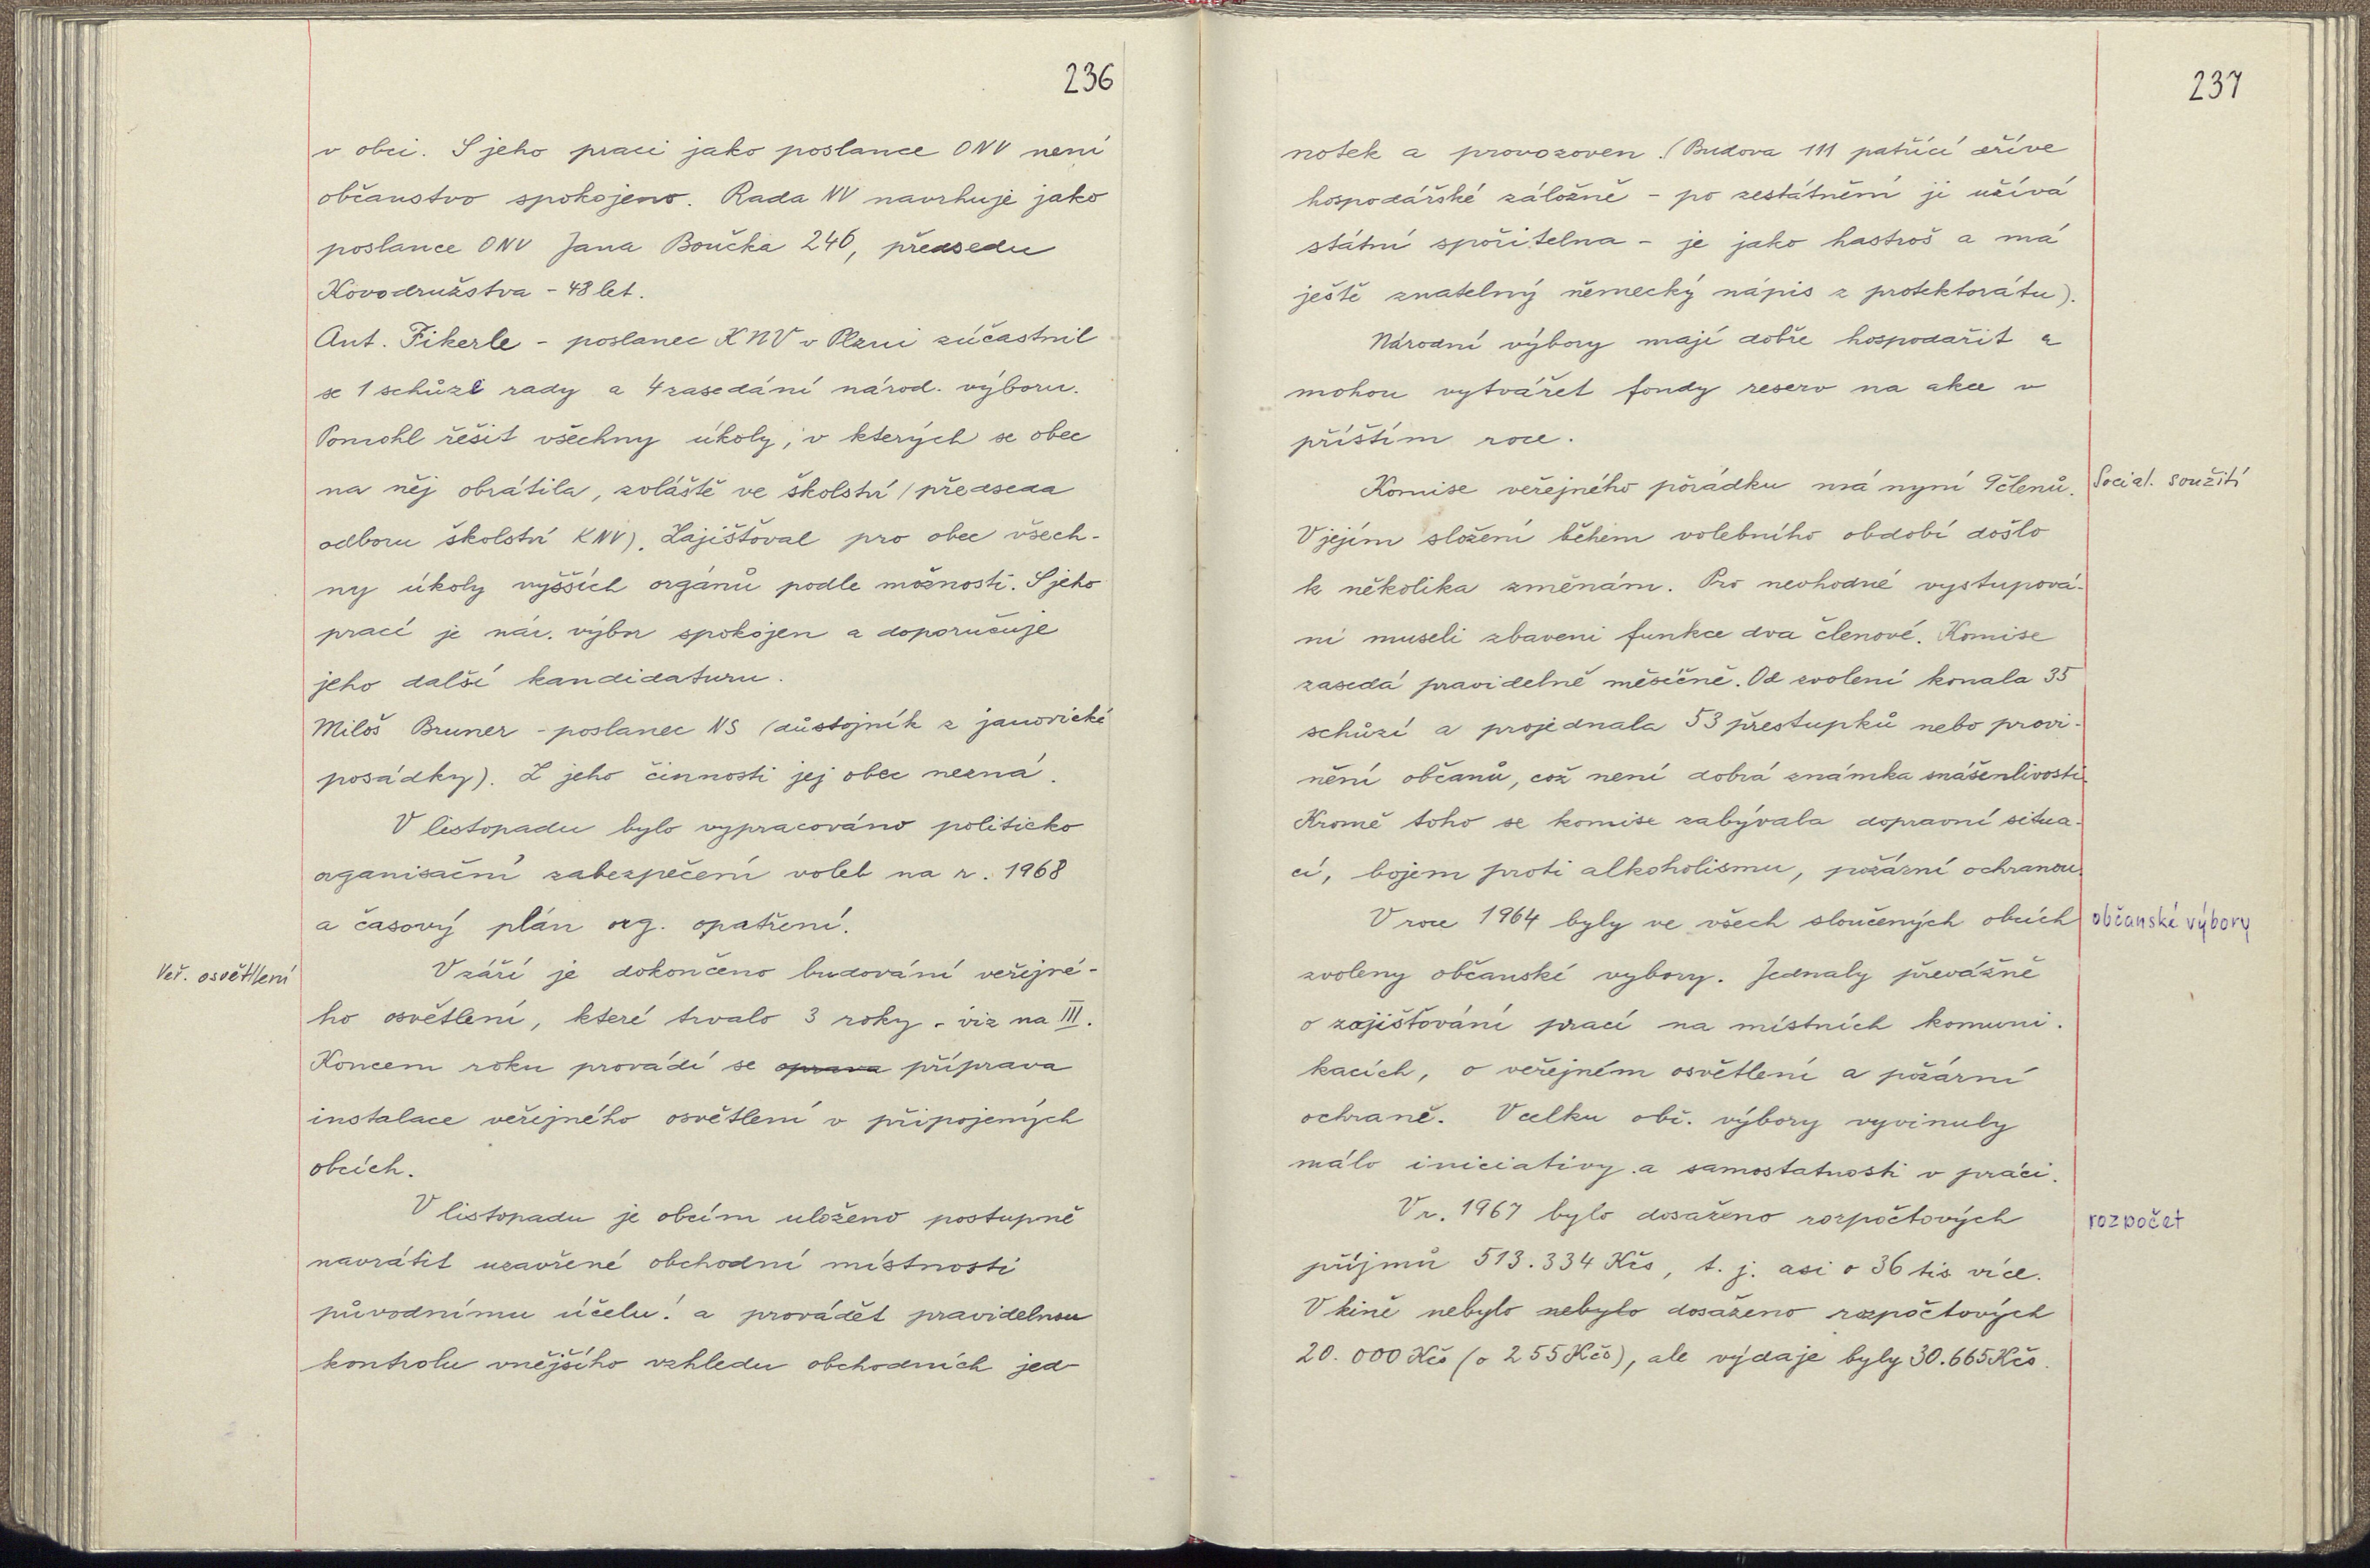 236
v obci. S jeho prací jako poslance ONV není
občanstvo spokojeno. Rada NV navrhuje jako
poslance ONV Jana Boučka 246, předsedu
Kovodružstva - 48 let.
Ant. Fikerle - poslanec KNV v Plzni zúčastnil
se 1 schůze rady a 4 zasedání národ. výboru.
Pomohl řešit všechny úkoly, v kterých se obec
na něj obrátila, zvláště ve školství (předseda
odboru školství KNV). Zajišťoval pro obec všech-
ny úkoly vyšších orgánů podle možností. S jeho
prací je nár. výbor spokojen a doporučuje
jeho další kandidaturu.
Miloš Bruner - poslanec NS (důstojník z janovické
posádky). Z jeho činnosti jej obec nezná.
V listopadu bylo vypracováno politicko
organisační zabezpečení voleb na r. 1968
a časový plán org. opatření.
Veř. osvětllení
V září je dokončeno budování veřejné-
ho osvětlení, které trvalo 3 roky - viz na III.
Koncem roku provádí se oprava příprava
instalace veřejného osvětlení v připojených
obcích.
V listopadu je obcím uloženo postupně
navrátit uzavřené obchodní místnosti
původnímu účelu! a provádět pravidelnou
kontrolu vnějšího vzhledu obchodních jed-
237
notek a provozoven. (Budova 111 patřící dříve
hospodářské záložně - po zestátnění ji užívá
státní spořitelna - je jako hastroš a má
ještě znatelný německý nápis z protektorátu).
Národní výbory mají dobře hospodařit a
mohou vytvářet fondy reserv na akce v
příštím roce.
Komise veřejného pořádku má nyní 9 členů.
Social. soužití
V jejím složení během volebního období došlo
k několika změnám. Pro nevhodné vystupová-
ní museli zbaveni funkce dva členové. Komise
zasedá pravidelně měsíčně. Od zvolení konala 35
schůzí a projednala 53 přestupků nebo provi-
nění občanů, což není dobrá známka snášenlivosti.
Kromě toho se komise zabývala dopravní situa-
cí, bojem proti alkoholismu, požární ochranou.
V roce 1964 byly ve všech sloučených obcích
občanské výbory
zvoleny občanské vybory. Jednaly převážně
o zajišťování prací na místních komuni-
kacích, o veřejném osvětlení a požární
ochraně. Vcelku obč. výbory vyvinuly
málo iniciativy a samostatnosti v práci.
V r. 1967 bylo dosaženo rozpočtových
rozpočet
příjmů 513.334 Kčs, t. j. asi o 36 tis více.
V kině nebylo nebylo dosaženo rozpočtových
20.000 Kčs (o 255 Kčs), ale výdaje byly 30.665 Kčs.